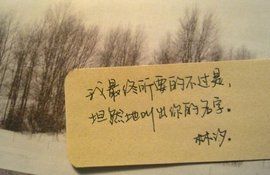 我最终所要的不过是，
坦然地叫出你的名字。
林汐.